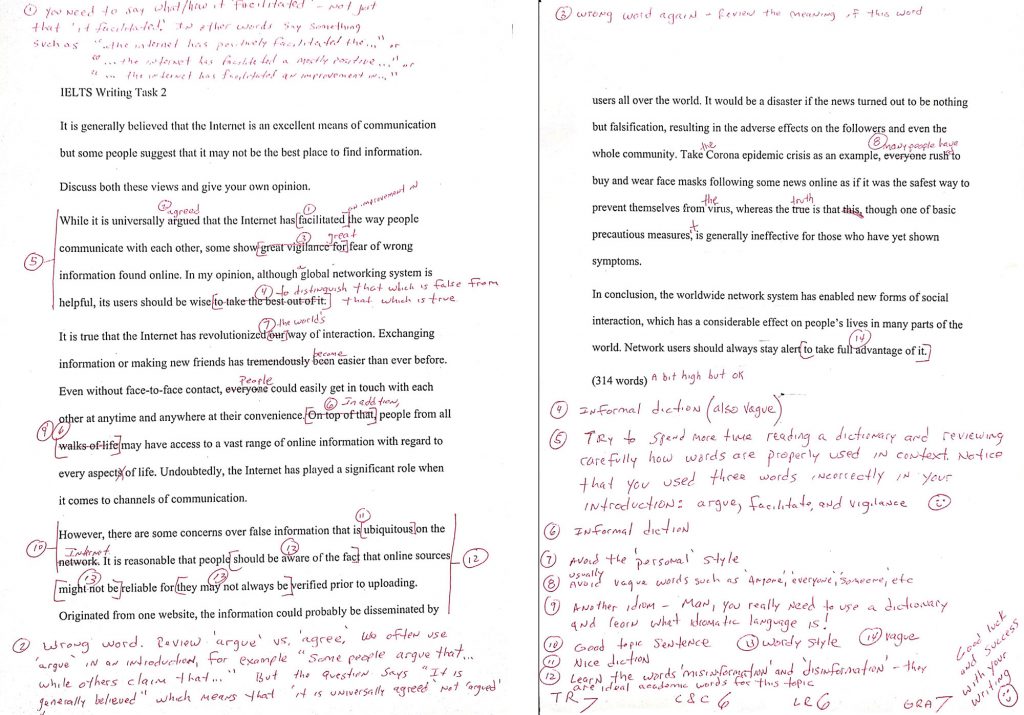 ① You need to say what/how it 'facilitated' - not just
that 'it facilitated.' In other words say something
such as "..the internet has positively facilitated the..." or
"... the internet has facilitated a mostly positive..." or
"... the internet has facilitated an improvement in..."
IELTS Writing Task 2
It is generally believed that the Internet is an excellent means of communication
but some people suggest that it may not be the best place to find information.
Discuss both these views and give your own opinion.
② agreed ① an improvement in
While it is universally argued that the Internet has [facilitated] the way people
③ great
communicate with each other, some show [great vigilance for] fear of wrong
⑤
information found online. In my opinion, although a global networking system is
④ to distinguish that which is false from
helpful, its users should be wise [to take the best out of it.] that which is true
⑦ the world's
It is true that the Internet has revolutionized [our] way of interaction. Exchanging
become
information or making new friends has tremendously been easier than ever before.
People
Even without face-to-face contact, everyone could easily get in touch with each
⑥ In addition,
other at anytime and anywhere at their convenience. [On top of that,] people from all
⑨ ⑥
[walks of life] may have access to a vast range of online information with regard to
every aspects of life. Undoubtedly, the Internet has played a significant role when
it comes to channels of communication.
⑪
However, there are some concerns over false information that is [ubiquitous] on the
⑩ Internet ⑬
network. It is reasonable that people [should be aware of the fact] that online sources
⑫
⑬ ⑬
[might not be] reliable for [they may not always be] verified prior to uploading.
Originated from one website, the information could probably be disseminated by
② Wrong word. Review 'argue' vs. 'agree,' We often use
'argue' in an introduction, for example "Some people argue that...
while others claim that..." But the question says "It is
generally believed" which means that 'it is universally agreed' not 'argued'
③ Wrong word again - Review the meaning of this word
users all over the world. It would be a disaster if the news turned out to be nothing
but falsification, resulting in the adverse effects on the followers and even the
the ⑧ many people have
whole community. Take Corona epidemic crisis as an example, everyone rush ed to
buy and wear face masks following some news online as if it was the safest way to
the truth
prevent themselves from virus, whereas the true is that this, though one of basic
precautious measures, it is generally ineffective for those who have yet shown
symptoms.
In conclusion, the worldwide network system has enabled new forms of social
interaction, which has a considerable effect on people's lives in many parts of the
⑭
world. Network users should always stay alert [to take full advantage of it.]
(314 words) A bit high but OK
④ Informal diction (also vague)
⑤ Try to spend more time reading a dictionary and reviewing
carefully how words are properly used in context. Notice
that you used three words incorrectly in your
introduction: argue, facilitate, and vigilance
⑥ Informal diction
⑦ Avoid the 'personal' style
usually
⑧ Avoid vague words such as 'anyone,' everyone,' someone,' etc
⑨ Another idiom - Man, you really need to use a dictionary
and learn what idiomatic language is!
⑩ Good topic sentence ⑬ wordy style ⑭ vague
⑪ Nice diction
⑫ Learn the words 'misinformation' and 'disinformation' - they
are ideal academic words for this topic
TR 7 C&C 6 LR 6 GRA 7
Good luck
and success
with your
writing